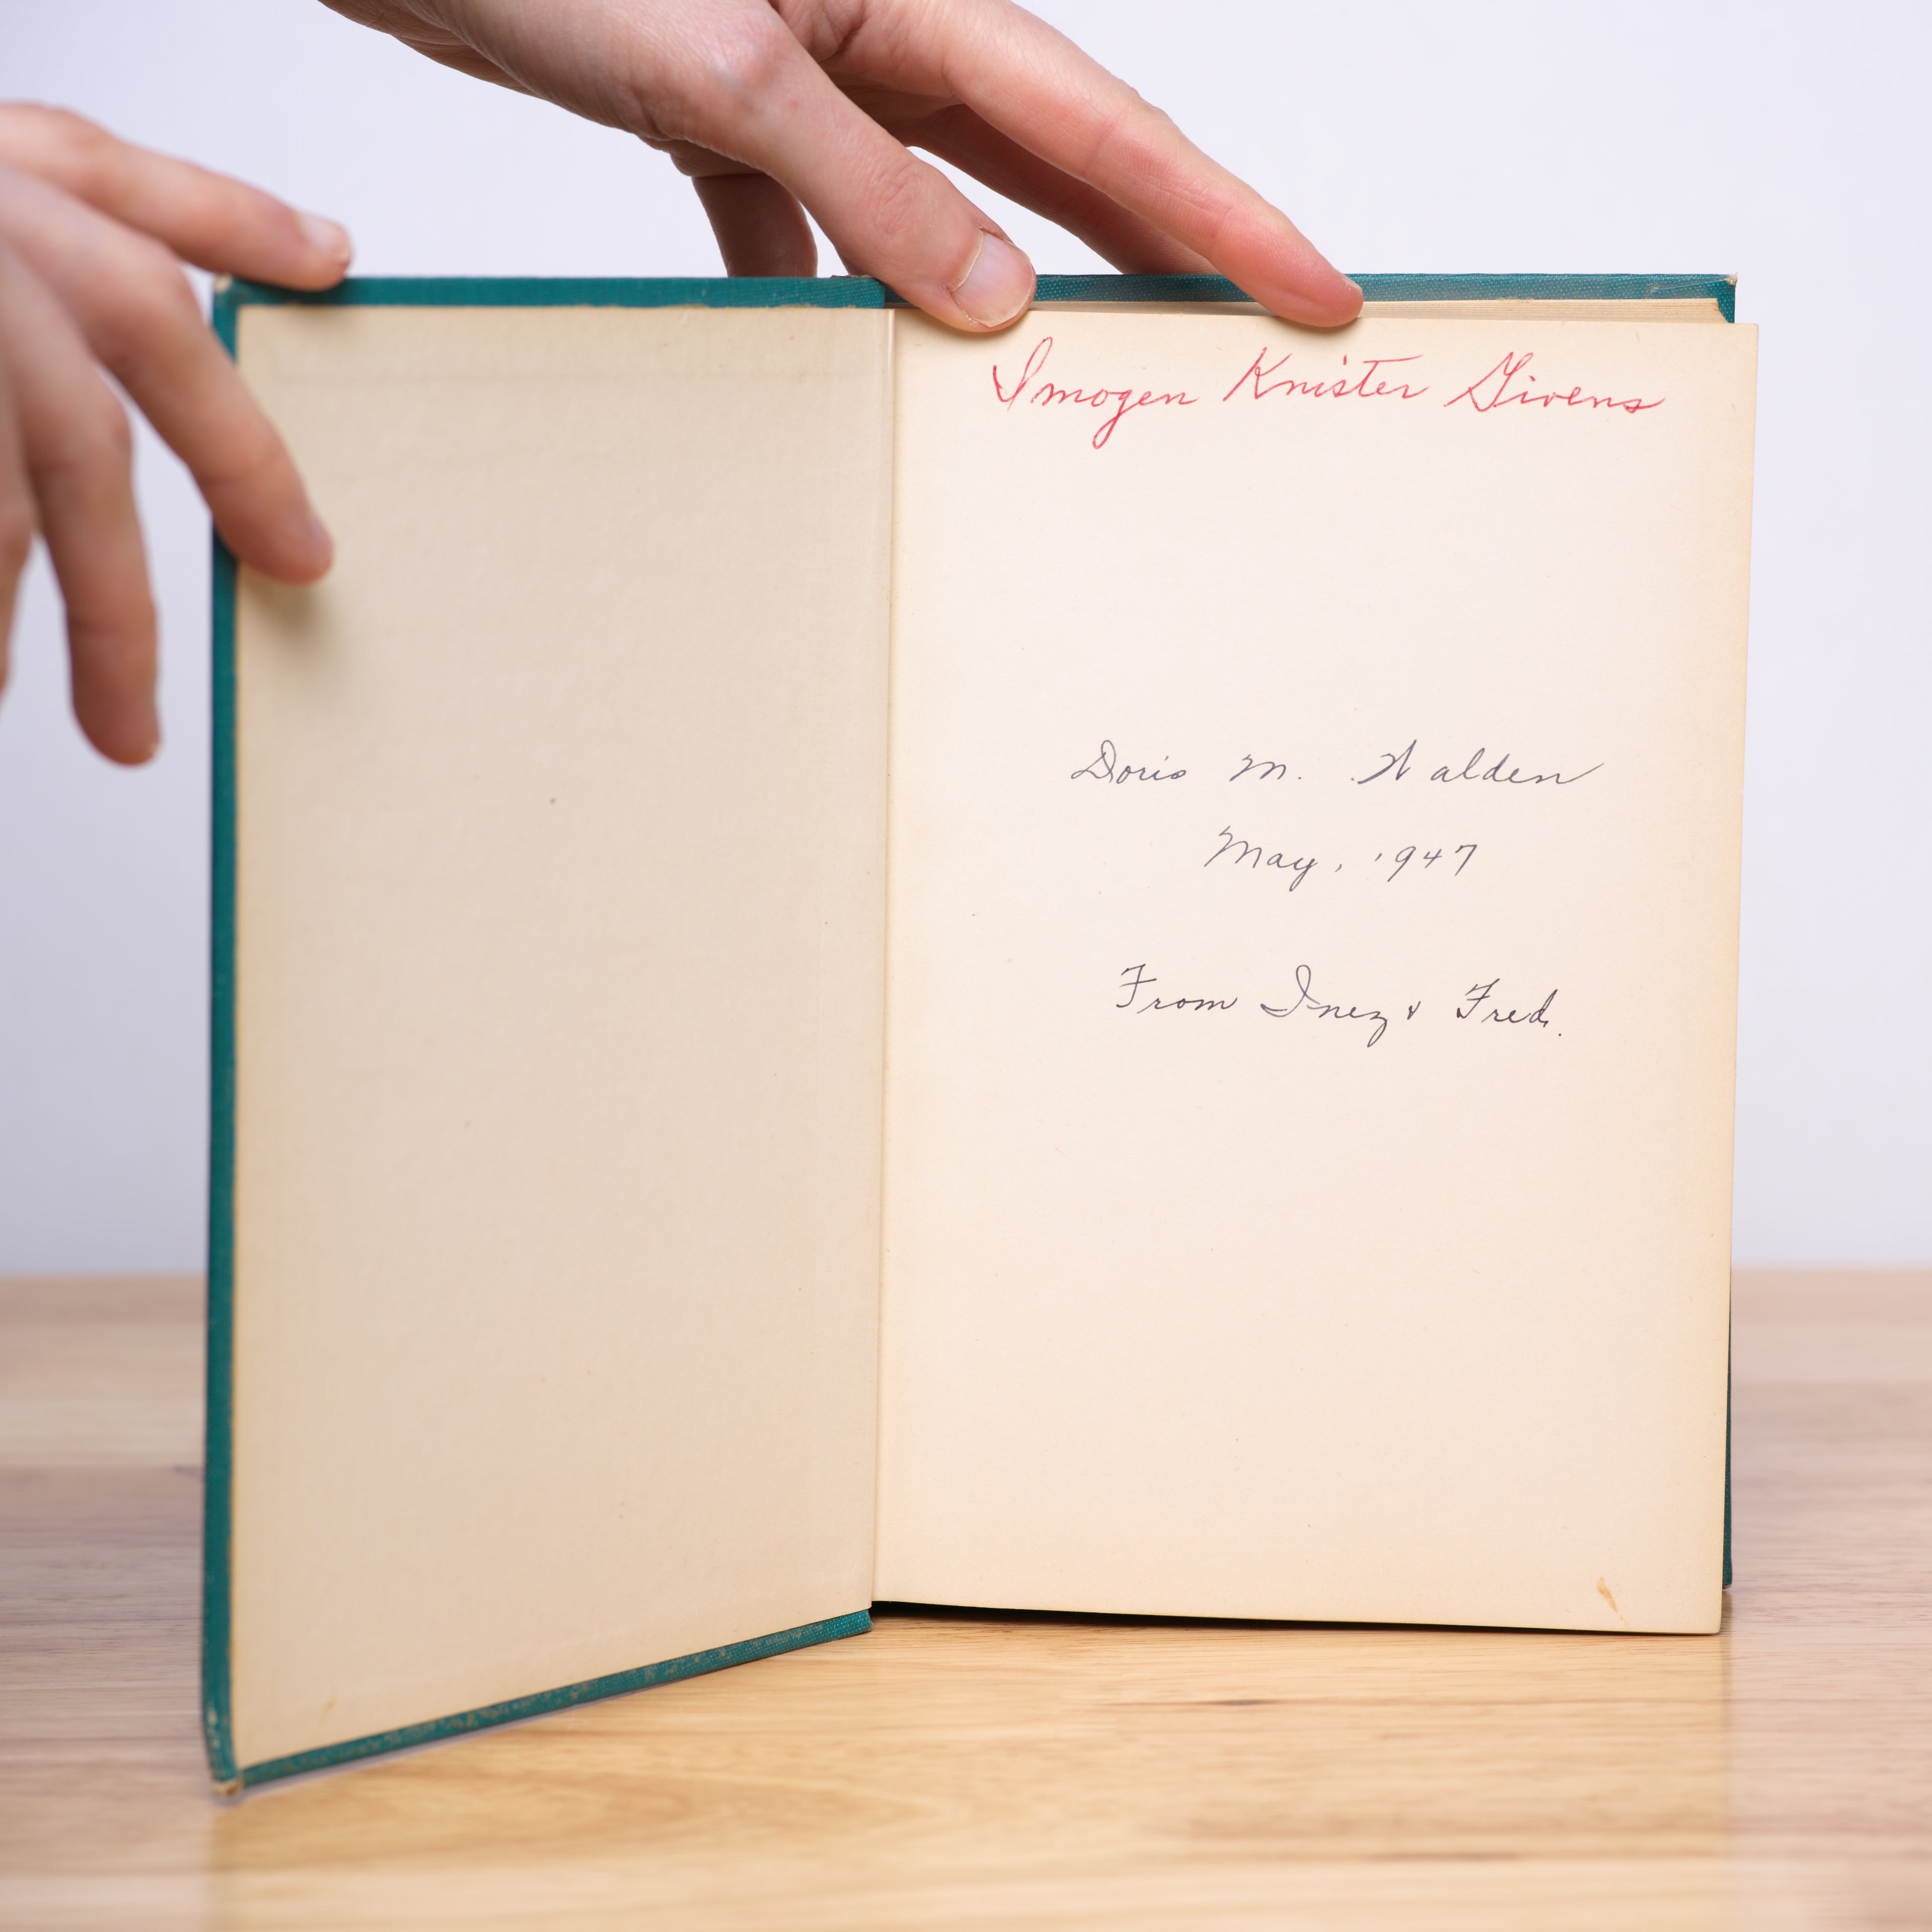 Imogen Knister Givens
Doris M. Walden
May, 1947
From Inez & Fred.